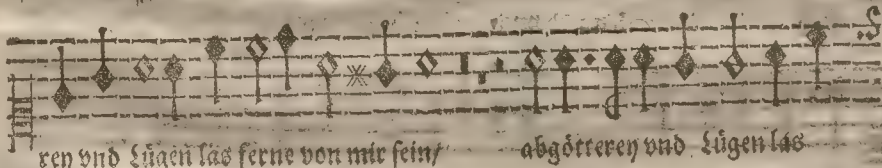 ren vnd Lügen las ferne von mir sein/ abgötterey vnd Lügen las